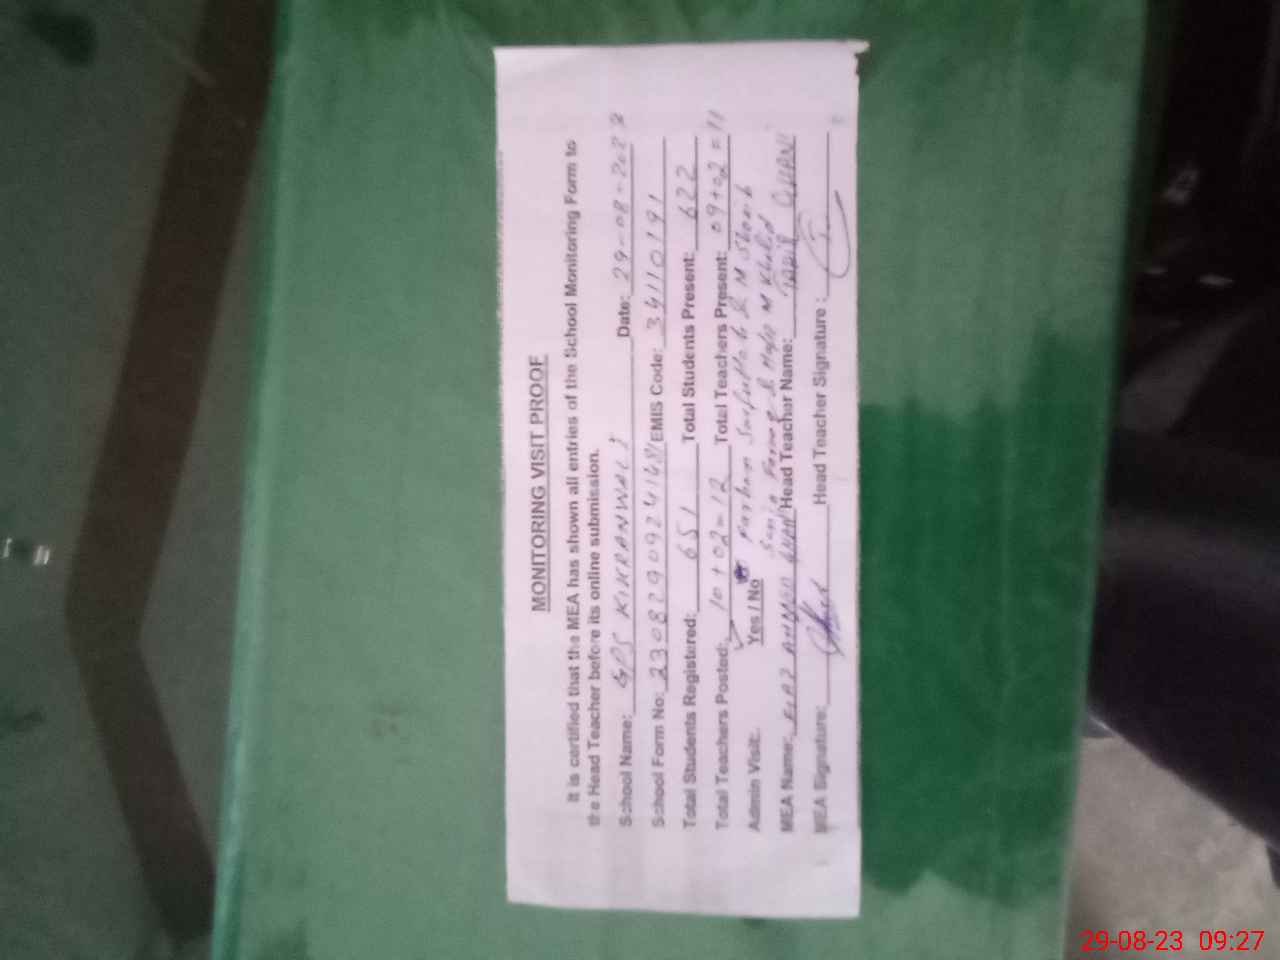 MONITORING VISIT PROOF
It is certified that the MEA has shown all entries of the School Monitoring Form to
the Head Teacher before its online submission.
School Name: GPS KIKRANWALI Date: 29-08-2023
School Form No: 23082909241481 EMIS Code: 34110191
Total Students Registered: 651 Total Students Present: 622
Total Teachers Posted: 10+02=12 Total Teachers Present: 09+02=11
Admin Visit: Yes / No Farhan & M Shoaib
Sonia & Hafiz M Khalid
MEA Name: AHMED KHAN Head Teacher Name: TARIQ GHANI
MEA Signature: Head Teacher Signature :
29-08-23 09:27